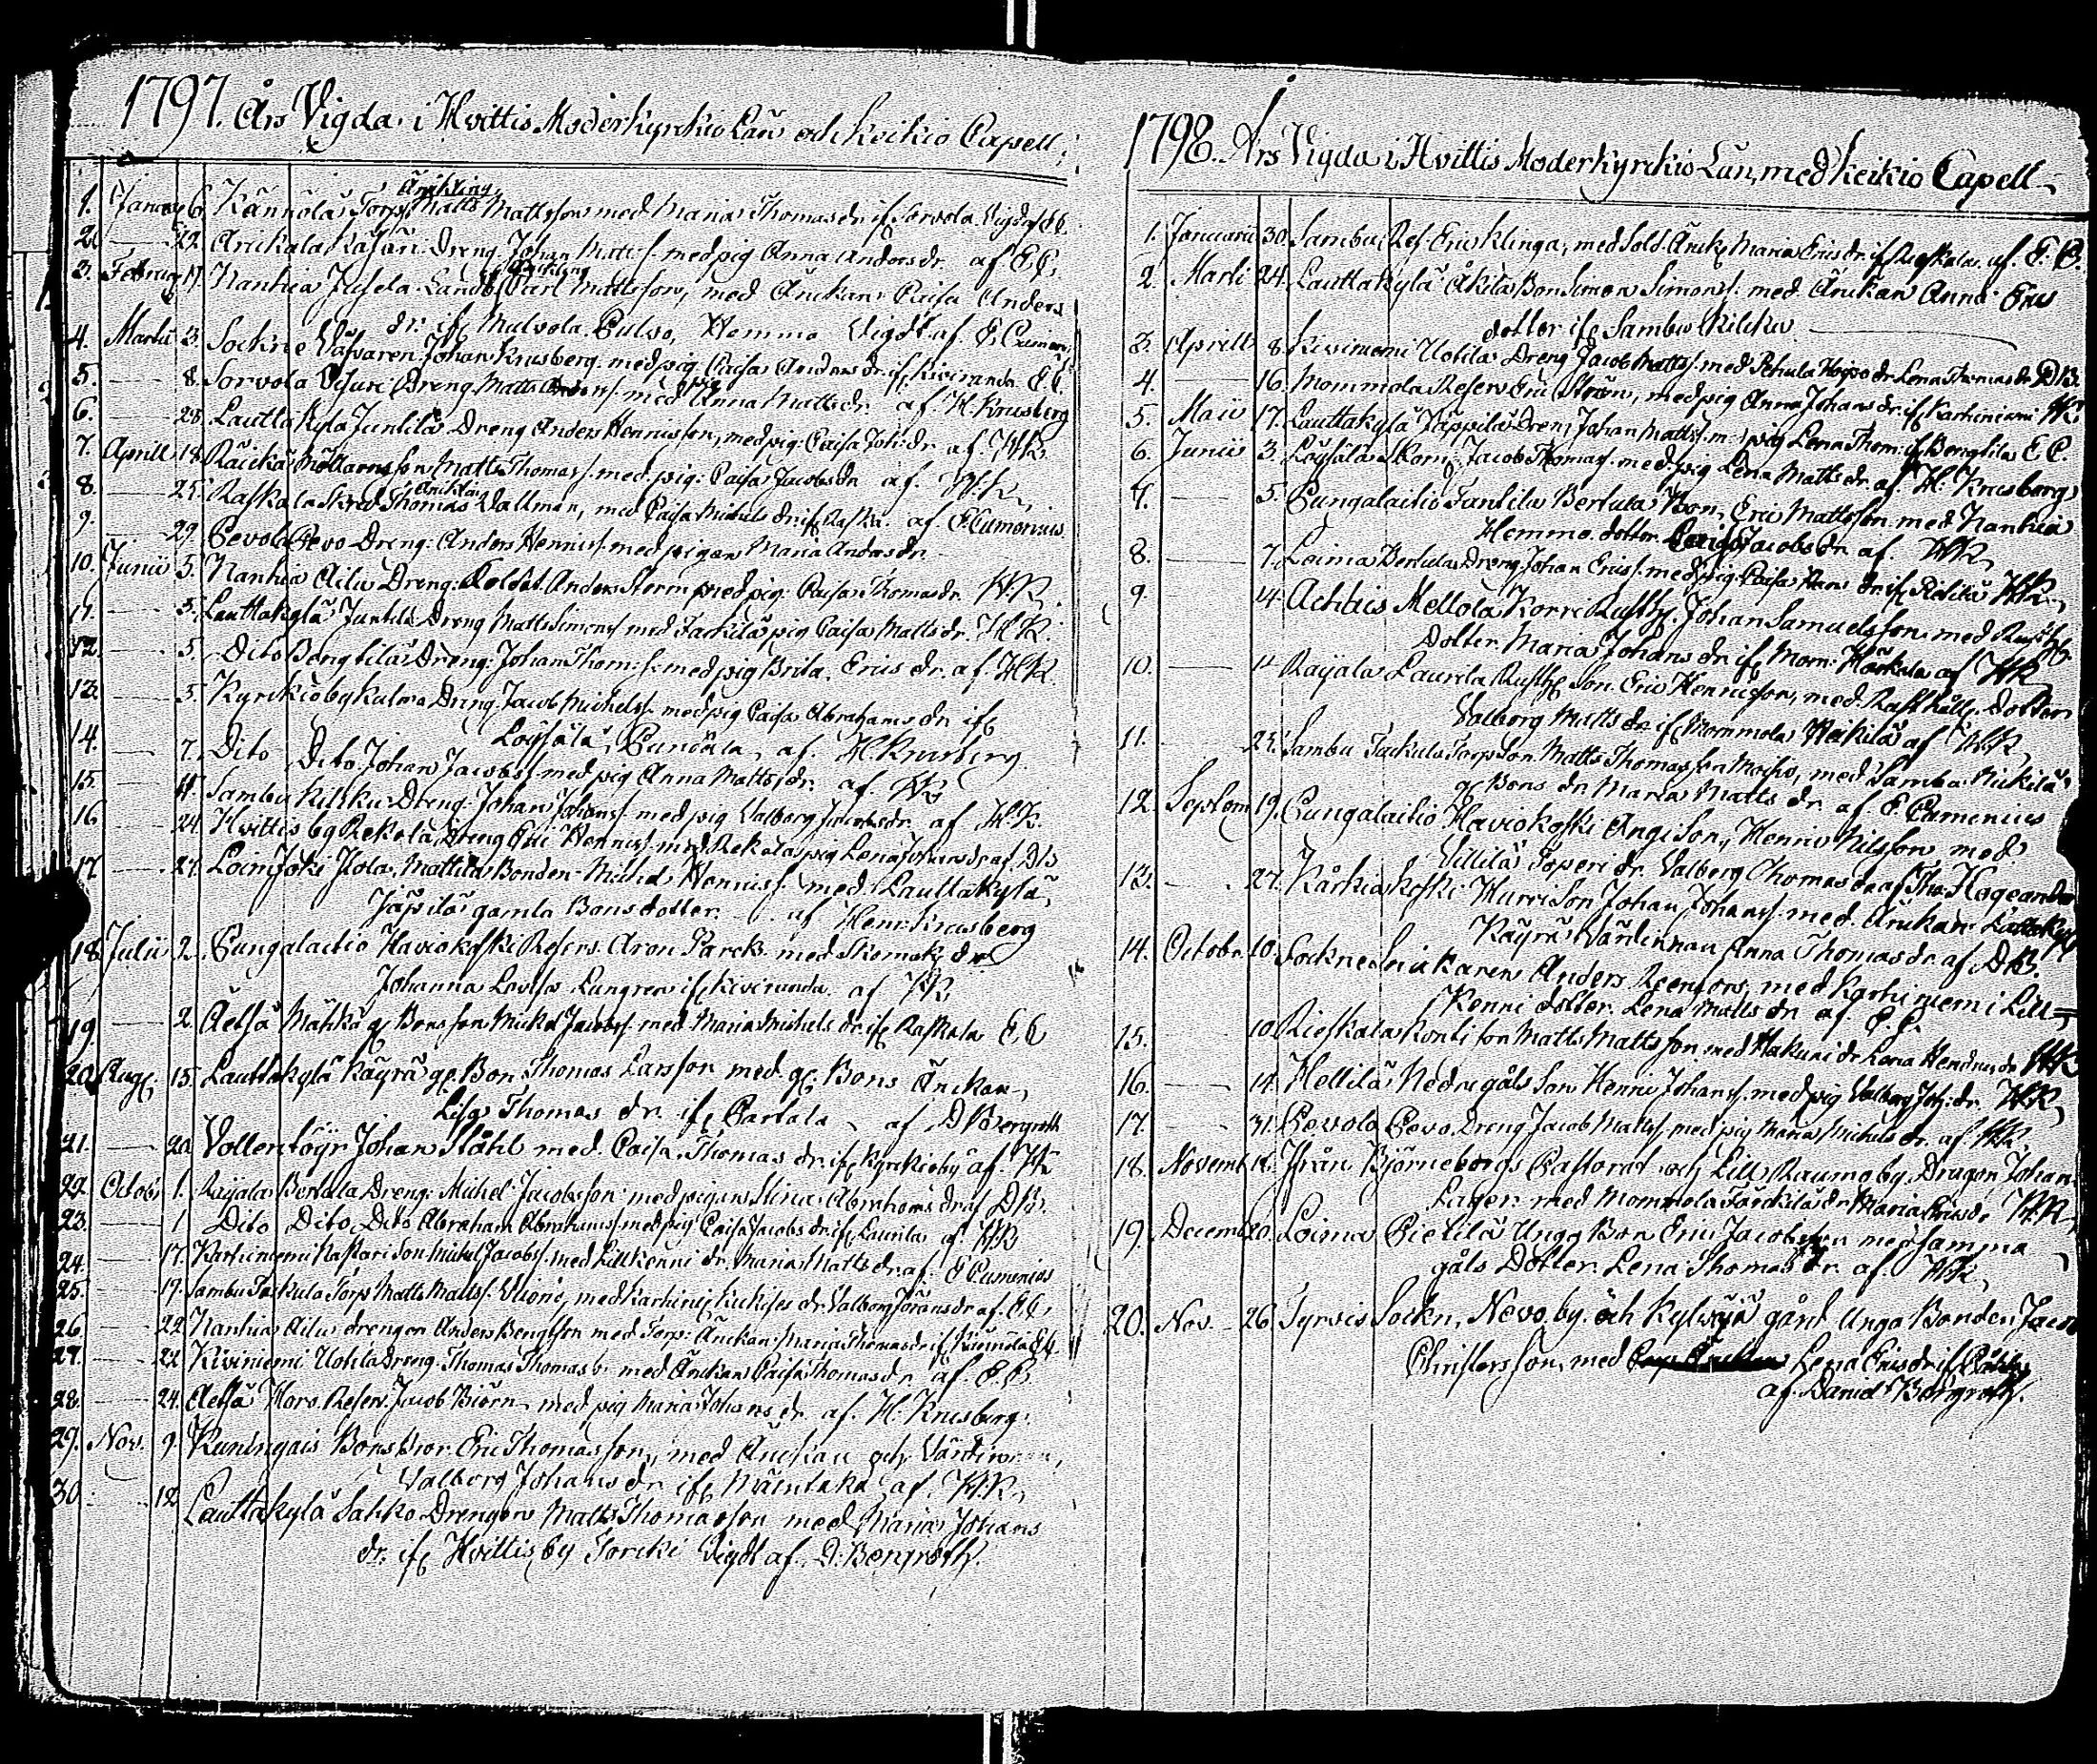 1797. Års Vigda i Hvittis Moderkyrckio Län och Keikio Capell
1. Januarii 6. Kännölä Torps Änkling Matts Mattsson med Maria Thomas dr if. Sorvola Vigde af E C.
2. — 22. Anickala Dreng Johan Matts s. med pig Anna Anders dr. af E C.
3. Februarii 17. Nanhia Jusela Landb. Änkling Carl Mattsson, med Änckan Caisa Anders
dr. if. Mulvola Pulso, Hemma Vigdt af E Cumen.
4. Martii 3. Sockne Väfvaren Johan Krusberg med pig Caisa Anders dr. if. Kiviranda E C.
5. — 8. Sorvola Dreng Matts med pig Anna Matts dr. af H. Krusberg
6. — 28. Lauttakylä Junttila Dreng Anders Henricsson, med pig Caisa Joh: dr. af HK
7. Aprill 18. Räickä Möllarns son Matts Thomas s. med pig: Caisa Jacobs dr af. H.K.
8. — 25. Raskala Skred. Änckling Thomas Vallman, med Caisa Michels dr if. Raska. af E. Cumenius
9. — 29. Cevola Cevo Dreng: Anders Henrics s. med pigan Maria Anders dr.
10. Junii 5. Nanhia Ailu Dreng: Soldat. Anders Storm med pig: Caisa Thomas dr. HK.
11. — 5. Lauttakylä Junttila Dreng Matts Simons s. med Tarkila pig Caisa Matts dr. H K.
12. — 5. Dito Bengtilä Dreng: Johan Thom: s. med pig Brita Erics dr. af. HK.
13. — 5. Kyrckioby Kulma Dreng Jacob Michels s. med pig Caisa Abrahams dr. if
Löysälä, af. H. Krusberg.
14. — 7. Dito Dito Johan Jacobs s. med pig Anna Matts dr. af. HK
15. — 11. Sambu Kilcku Dreng: Johan Johans s. med pig Valborg Jacobs dr. af H.K.
16 — 24. Hvittis by Rekola Dreng Eric Henrics s. med Rekola pig Lena Johans dr af DB
17. — 24. Loimjoki Jlola, Mattila Bonden Michel Henrics s. med Lauttakylä
Jäpilä gamla Bons dotter af Henr. Krusberg
18. Julii 2. Cungalaitio Haviokoski Reserv. Aron Parck med Skomak. dr
Johanna Lovisa Lungren if. Kiviranda. af HK
19. — 2. Äetsä Mähkä g. Bons son Mickel Jacobs s. med Maria Michels dr. if. Raskala E C
20. Aug. 15. Lauttakylä Käyrä g. Bon Thomas Larsson med g. Bons Änckan
Lisa Thomas dr. if. Cartala af D Bergroth
21. — 20 Vollentöyr Johan Ståhl med Caisa Thomas dr. if. Kyrckioby af. HK
22. Octob. 1. Raijala Bertula Dreng: Michel Jacobsson med pigan Stina Abrahams dr af DB.
23. — 1 Dito Dito Dito Abraham Abrahams s. med pig Caisa Jacobs dr. if. Laurila af HK
24. — 17. Karhiniemi Raskari Son Mickel Jacobs s. med Lillkenni dr. Maria Matts dr. af: E Cumenius
25. — 17. Sambu Tackula Torp Matts Matts s. med Karhini. Kukises dr. Valborg Jörans dr af. E C.
26 — 22. Nanhia Ailu drengen Anders Bengtsson med Torp: Änckan Maria Thomas dr. if. E C.
27. — 22. Kiviniemi Uotila Dreng. Thomas Thomas s. med Änckan Caisa Thomas dr af. E C
28. — 24. Aetsä Horo Reserv. Jacob Biörn med pig Maria Johans dr. af. H. Krusberg.
29. Nov. 9. Kuningais Bons bror Eric Thomasson, med Änckan och Värdinnan,
Valborg Johans dr. if. af. H.K.
30 — 12 Lauttakylä Sahko Drengen Matts Thomasson med Maria Johans
dr. if. Hvittis by Torcki Vigdt af D: Bergroth.
1798. Års Vigda i Hvittis Moderkyrckio Län, med Keikio Capell
1. Januarii 30. Sambu Res. Eric Klinga, med Sold. Änck. Maria Erics dr if. Rieskala. af. E. C.
2. Marti 24. Lauttakylä Äkilä Bon Simon Simons s. med Änckan Anna Erics
dotter if. Sambu Kilcku
3. Aprill 8. Kiviniemi Uotila Dreng Jacob Matts s. med Pehula dr Lena Thomas dr DB.
4. — 16. Mommola Reserv Eric Ström, med pig Anna Johans dr. if. Karhiniemi HK
5. Maii 17. Lauttakylä Jäppilä Dreng Johan Matts s. m pig Lena Thom: if Bengtila E C.
6. Junii 3. Löysälä Skom. Jacob Thomas s. med pig Lena Matts dr. af H: Krusberg
7. — 5. Cungalaitio Tantila Bertula Bon, Eric Mattsson med Nanhia
Hemmo dotter Caisa Jacobs dr. af. HK
8. — 7. Loima Bertula Dreng Johan Erics s. med pig Caisa Hans dr. if. Pietilä HK
9. 14. Achtais Mellola Korri Rusth. Johan Samuelsson med Rusth.
Dotter Maria Johans dr. if. Mom: Härkälä af HK
10. — 14 Raijala Laurila Rusth. Son Eric Henricsson, med Rusthåll. Dotter
Valborg Matts dr. if. Mommola Heikilä af HK
11. 24. Sambu Tackula Torp Son Matts Thomasson Moisio, med Sambu Nickilä
g. Bons dr. Maria Matts dr. af E. Cumenius
12. Septem 19. Cungalaitio Haviokoski Angi Son, Henric Nilsson med
Villilä Soperi dr Valborg Thomas dr. af Tho: Hogeander
13. — 27. Kårkiakoski Hurri Son Johan Johans s. med Änckan Lauttakyl
Käyrä Värdinnan Anna Thomas dr. af D B.
14. Octobr. 10. Sockne Snickaren Anders Reenfors, med Karhiniemi Lill-
Kenni dotter Lena Matts dr. af E. C.
15. 10. Rieskala Konti son Matts Mattsson med Hakuni dr Lena Hendrics dr HK
16. — 14. Hellilä Nedregåls Son Henric Johans s. med pig Valborg Joh: dr. HK
17. — 31. Cevola Cevo Dreng Jacob Matts s. med pig Maria Michels dr. af. HK.
18. Novemb. 12. Ifrån Björneborgs Pastorat och Lill Raumo by Dragon Johan
Lager med Mommola Tarckila dr Maria Erics dr HK
19. Decemb. 20. Loima Pietilä Unga Bon Eric Jacobsson med samma
gåls Dotter Lena Thomas dr. af HK
20. Nov. — 26. Tyrvis Sockn, Nevo by och Kylväjä gård Unga Bonden Jacob
Christersson, med Lena Erics dr if.
af Daniel Bergroth.